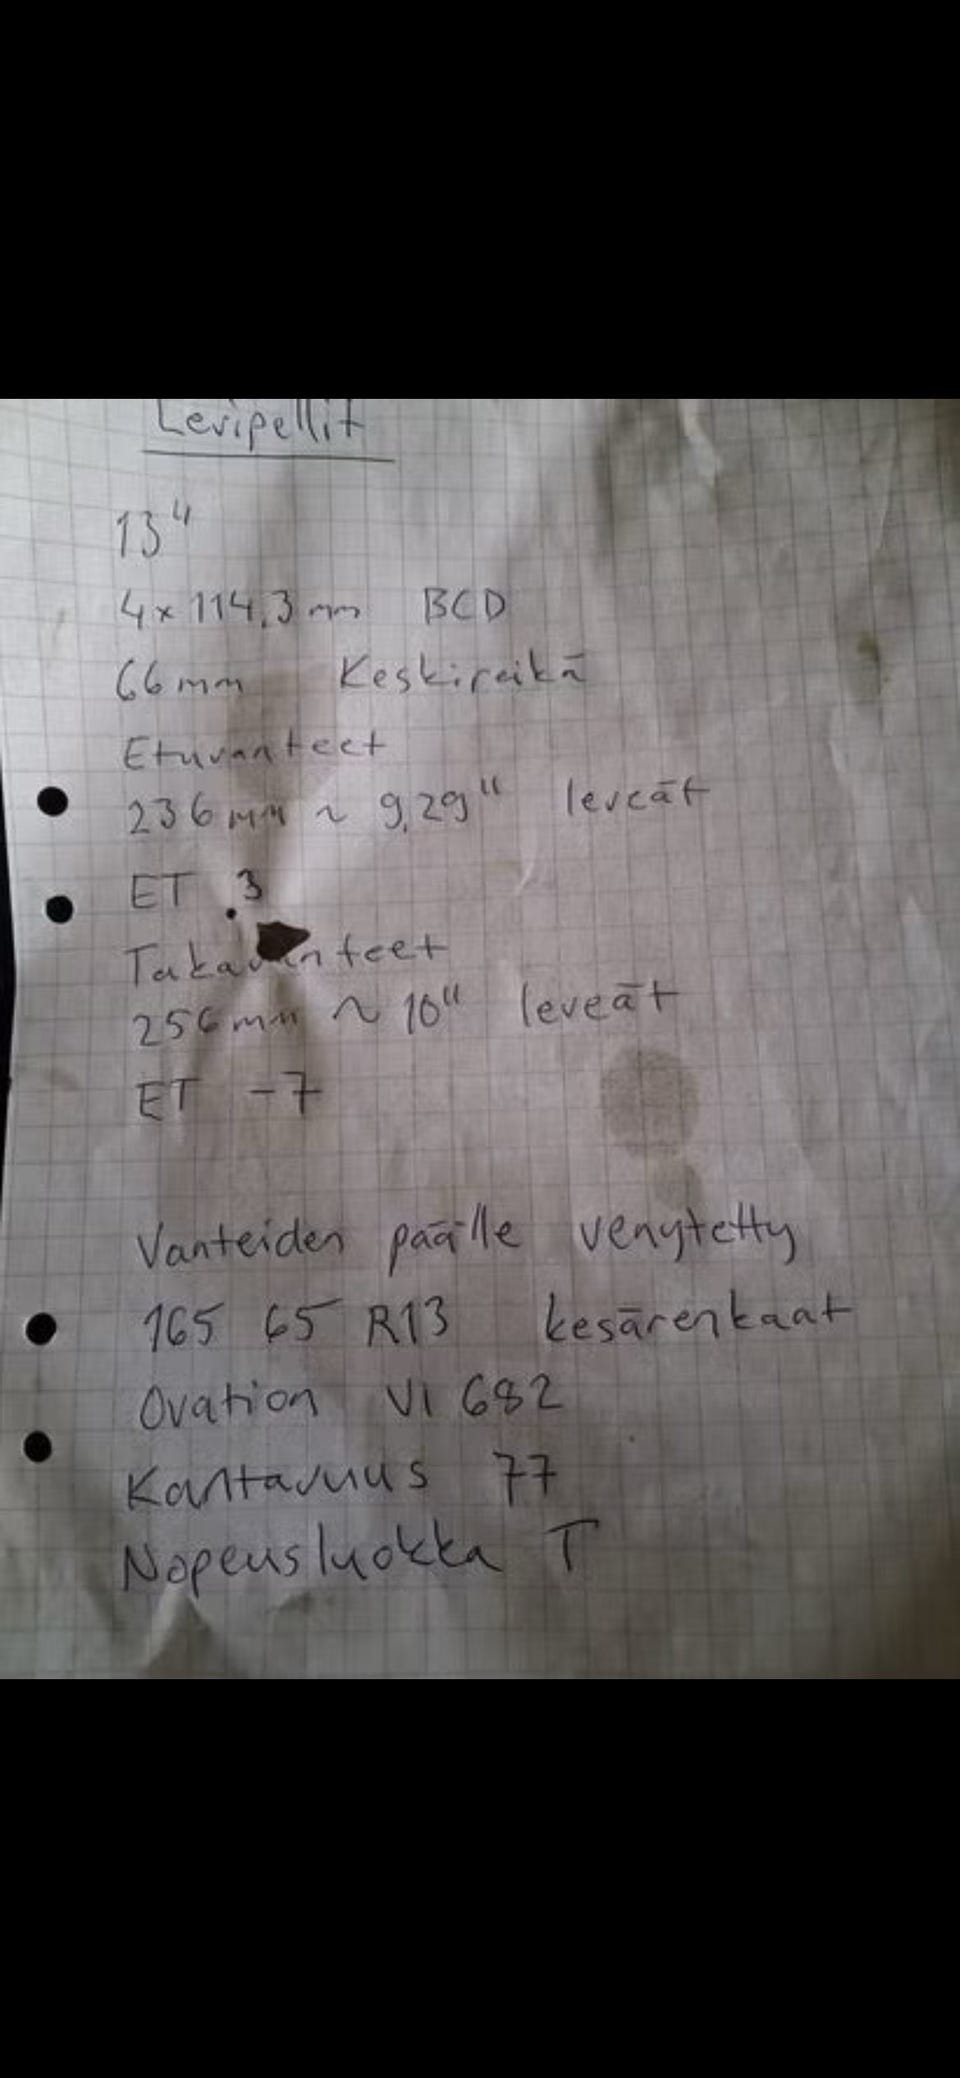 Levipellit
13"
4x 114,3 mm BCD
66mm Keskireikä
Etuvanteet
236 mm ~ 9,29" leveät
ET 3
Takavanteet
256mm ~ 10" leveät
ET -7
Vanteiden päälle venytetty
165 65 R13 kesärenkaat
Ovation VI 682
Kantavuus 77
Nopeusluokka T